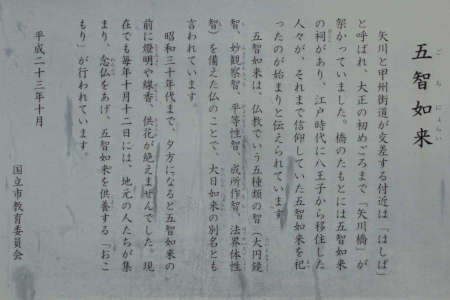 五智如来
ごちにょらい
矢川と甲州街道が交差する付近は「はしば」
と呼ばれ、大正の初めごろまで「矢川橋」が
架かっていました。橋のたもとには五智如来
の祠があり、江戸時代に八王子から移住した
人々が、それまで信仰していた五智如来を祀
ったのが始まりと伝えられています。
五智如来は、仏教でいう五種類の智（大円鏡
智、妙観察智、平等性智、成所作智、法界体性
智）を備えた仏のことで、大日如来の別名とも
言われています。
昭和三十年代まで、夕方になると五智如来の
前に燈明や線香、供花が絶えませんでした。現
在でも毎年十月十二日には、地元の人たちが集
まり、念仏をあげ、五智如来を供養する「おこ
もり」が行われています。
平成二十三年十月
国立市教育委員会